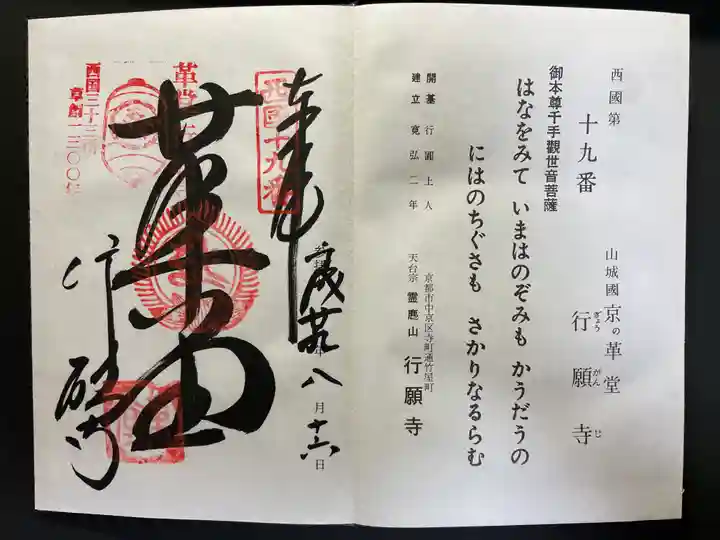 西國第
十九番
山城國 京の革堂
行願寺
ぎょう がん じ
御本尊千手觀世音菩薩
はなをみて いまはのぞみも かうだうの
にはのちぐさも さかりなるらむ
開基 行圓上人
建立 寛弘二年
京都市中京区寺町通竹屋町
天台宗 霊麀山 行願寺
奉拝
西國十九番
革堂
行願寺
八月十六日
西国三十三所
草創一三〇〇年